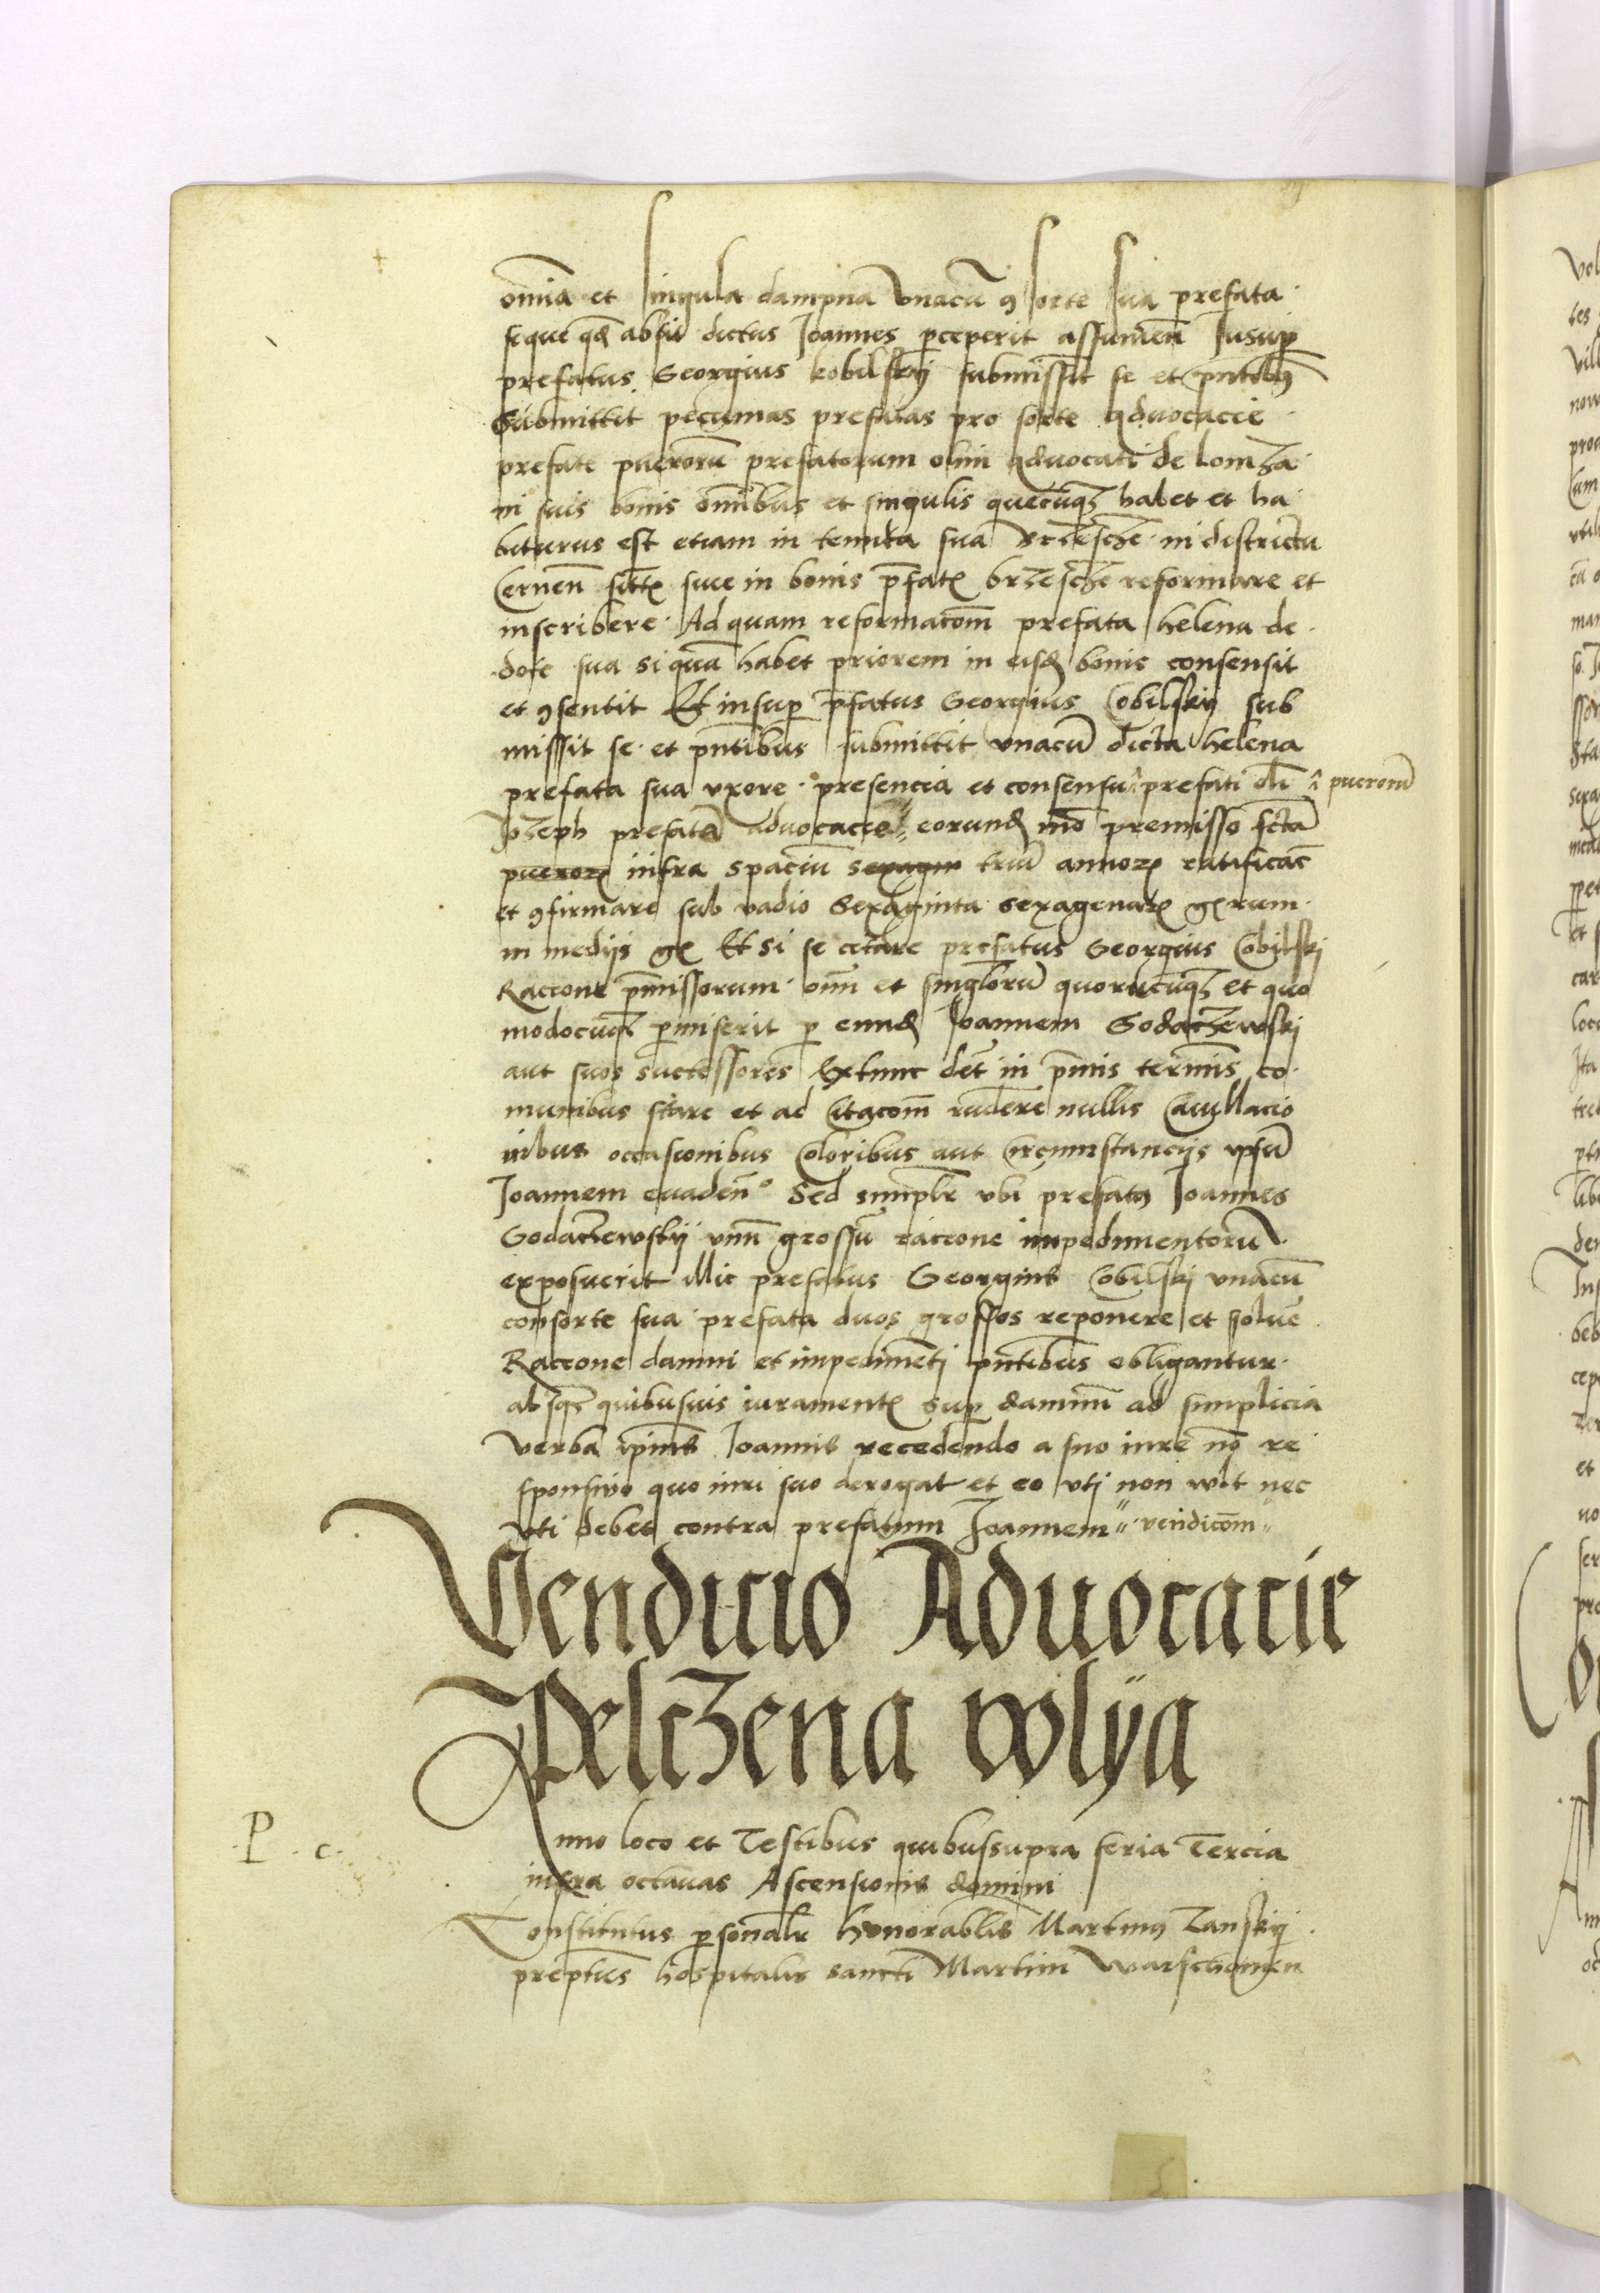 om̄ia et singula dampna vnacū ꝯsorte sua prefata
seque qd̄ absit dictus Joannes ꝑceperit assumen̄ Jnsuꝑ
prefatus Georgius kobilskij submissit se et pn̄tibꝯ
Submittit pecunias prefatas pro sorte aduocacie
prefate puerorū prefatorum olim aduocati de lomza
in suis bonis om̄ibus et singulis quecūqꝫ habet et ha
biturus est etiam in tenuta sua brzesche in districtu
Cernen̄ siue in bonis p̄fatꝭ brzesche reformare et
inscribere Ad quam reformacōm prefata helena de
dote sua si quā habet priorem in eisd̄ bonis consensit
et ꝯsentit Et insuꝑ p̄fatus Georgius Cobilskij sub
missit se et pn̄tibus submittit vnacū dicta helena
prefata sua vxore presencia et consensu prefati oli puerorū
Jozeph prefatā aduocaciē eorund̄ mō premisso
pueroꝝ infra spaciū sexagin triū annoꝝ ratificare
et ꝯfirmare sub vadio Sexaginta sexagenarꝝ
in medijs gꝭ Et si se citare prefatus Georgius Cobilski
Racione p̄missorum om̄ et singlorū quorūcūqꝫ et quo
modocūqꝫ ꝑmiserit ꝑ eund̄ Joannem Godaczewski
aut suos successores Extunc debet in p̄mis terminis co
munibus stare et ad Citacōm rn̄dere nullis Cauillacio
nibus occasionibus Coloribus aut Circumstancijs ipsū
Joannem euaden̄ Sed simplr vbi prefatꝯ Joannes
Godaczewskij vnū grossū racione impedimentorū
exposuerit illic prefatus Georgius Cobilski vnacū
consorte sua prefata duos grossos reponere et soluē
Racione damni et impedimēti pn̄tibus obligantur
absqꝫ quibusuis iuramentꝭ suꝑ damnū ad simplicia
verba ip̄ius Joannis recedendo a suo iure nō re
sponsiuo quo iuri suo derogat et eo vti non vult nec
vti debet contra prefatum Joannem vendicōm
Vendicio Aduocacie
Pelczena wolya
P c
Anno loco et Testibus quibussupra feria Tercia
infra octauas Ascensionis domini
Constitutus ꝑsonalr honorablis Martinꝯ Zanskij
prepūs hospitalis sancti Martini Warschouien